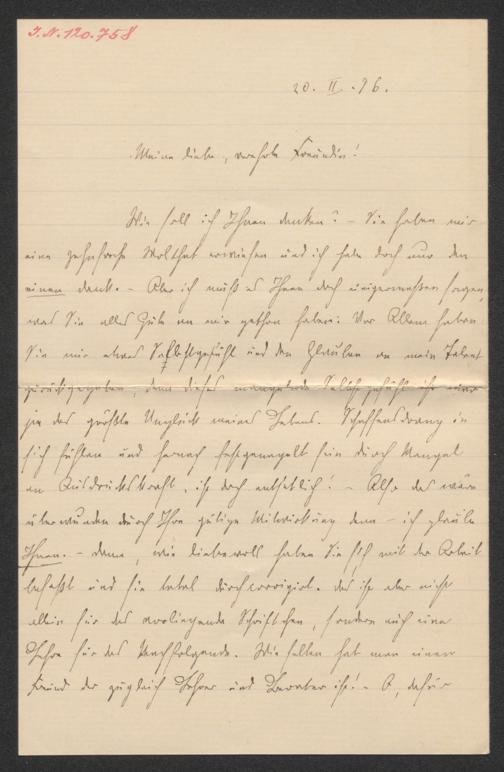 I.N. 120.758
20. II. 96.
Meine liebe, verehrte Freundin!
Wie soll ich Ihnen danken? – Sie haben mir
eine zehnfache Wolthat erwiesen und ich habe doch nur den
einen Dank. – Aber ich muß es Ihnen doch einigermaßen sagen,
was Sie alles Gute an mir gethan haben: Vor Allem haben
Sie mir etwas Selbstgefühl und den Glauben an mein Talent
zurückgegeben, denn dieses mangelnde Selbstgefühl ist
ja das größte Unglück meines Lebens. Schaffensdrang in
sich fühlen und hernach festgenagelt sein durch Mangel
an Ausdruckskraft, ist doch entsetzlich! – Also das wäre
überwunden durch Ihre gütige Mitwirkung denn – ich glaube
Ihnen. – Dann, wie liebevoll haben Sie sich mit der Arbeit
befaßt und sie total durchcorrigirt. Das ist aber nicht
allein für das vorliegende Schriftchen, sondern auch eine
Lehre für das Nachfolgende. Wie selten hat man einen
Freund der zugleich Lehrer und Berater ist! – O, dafür